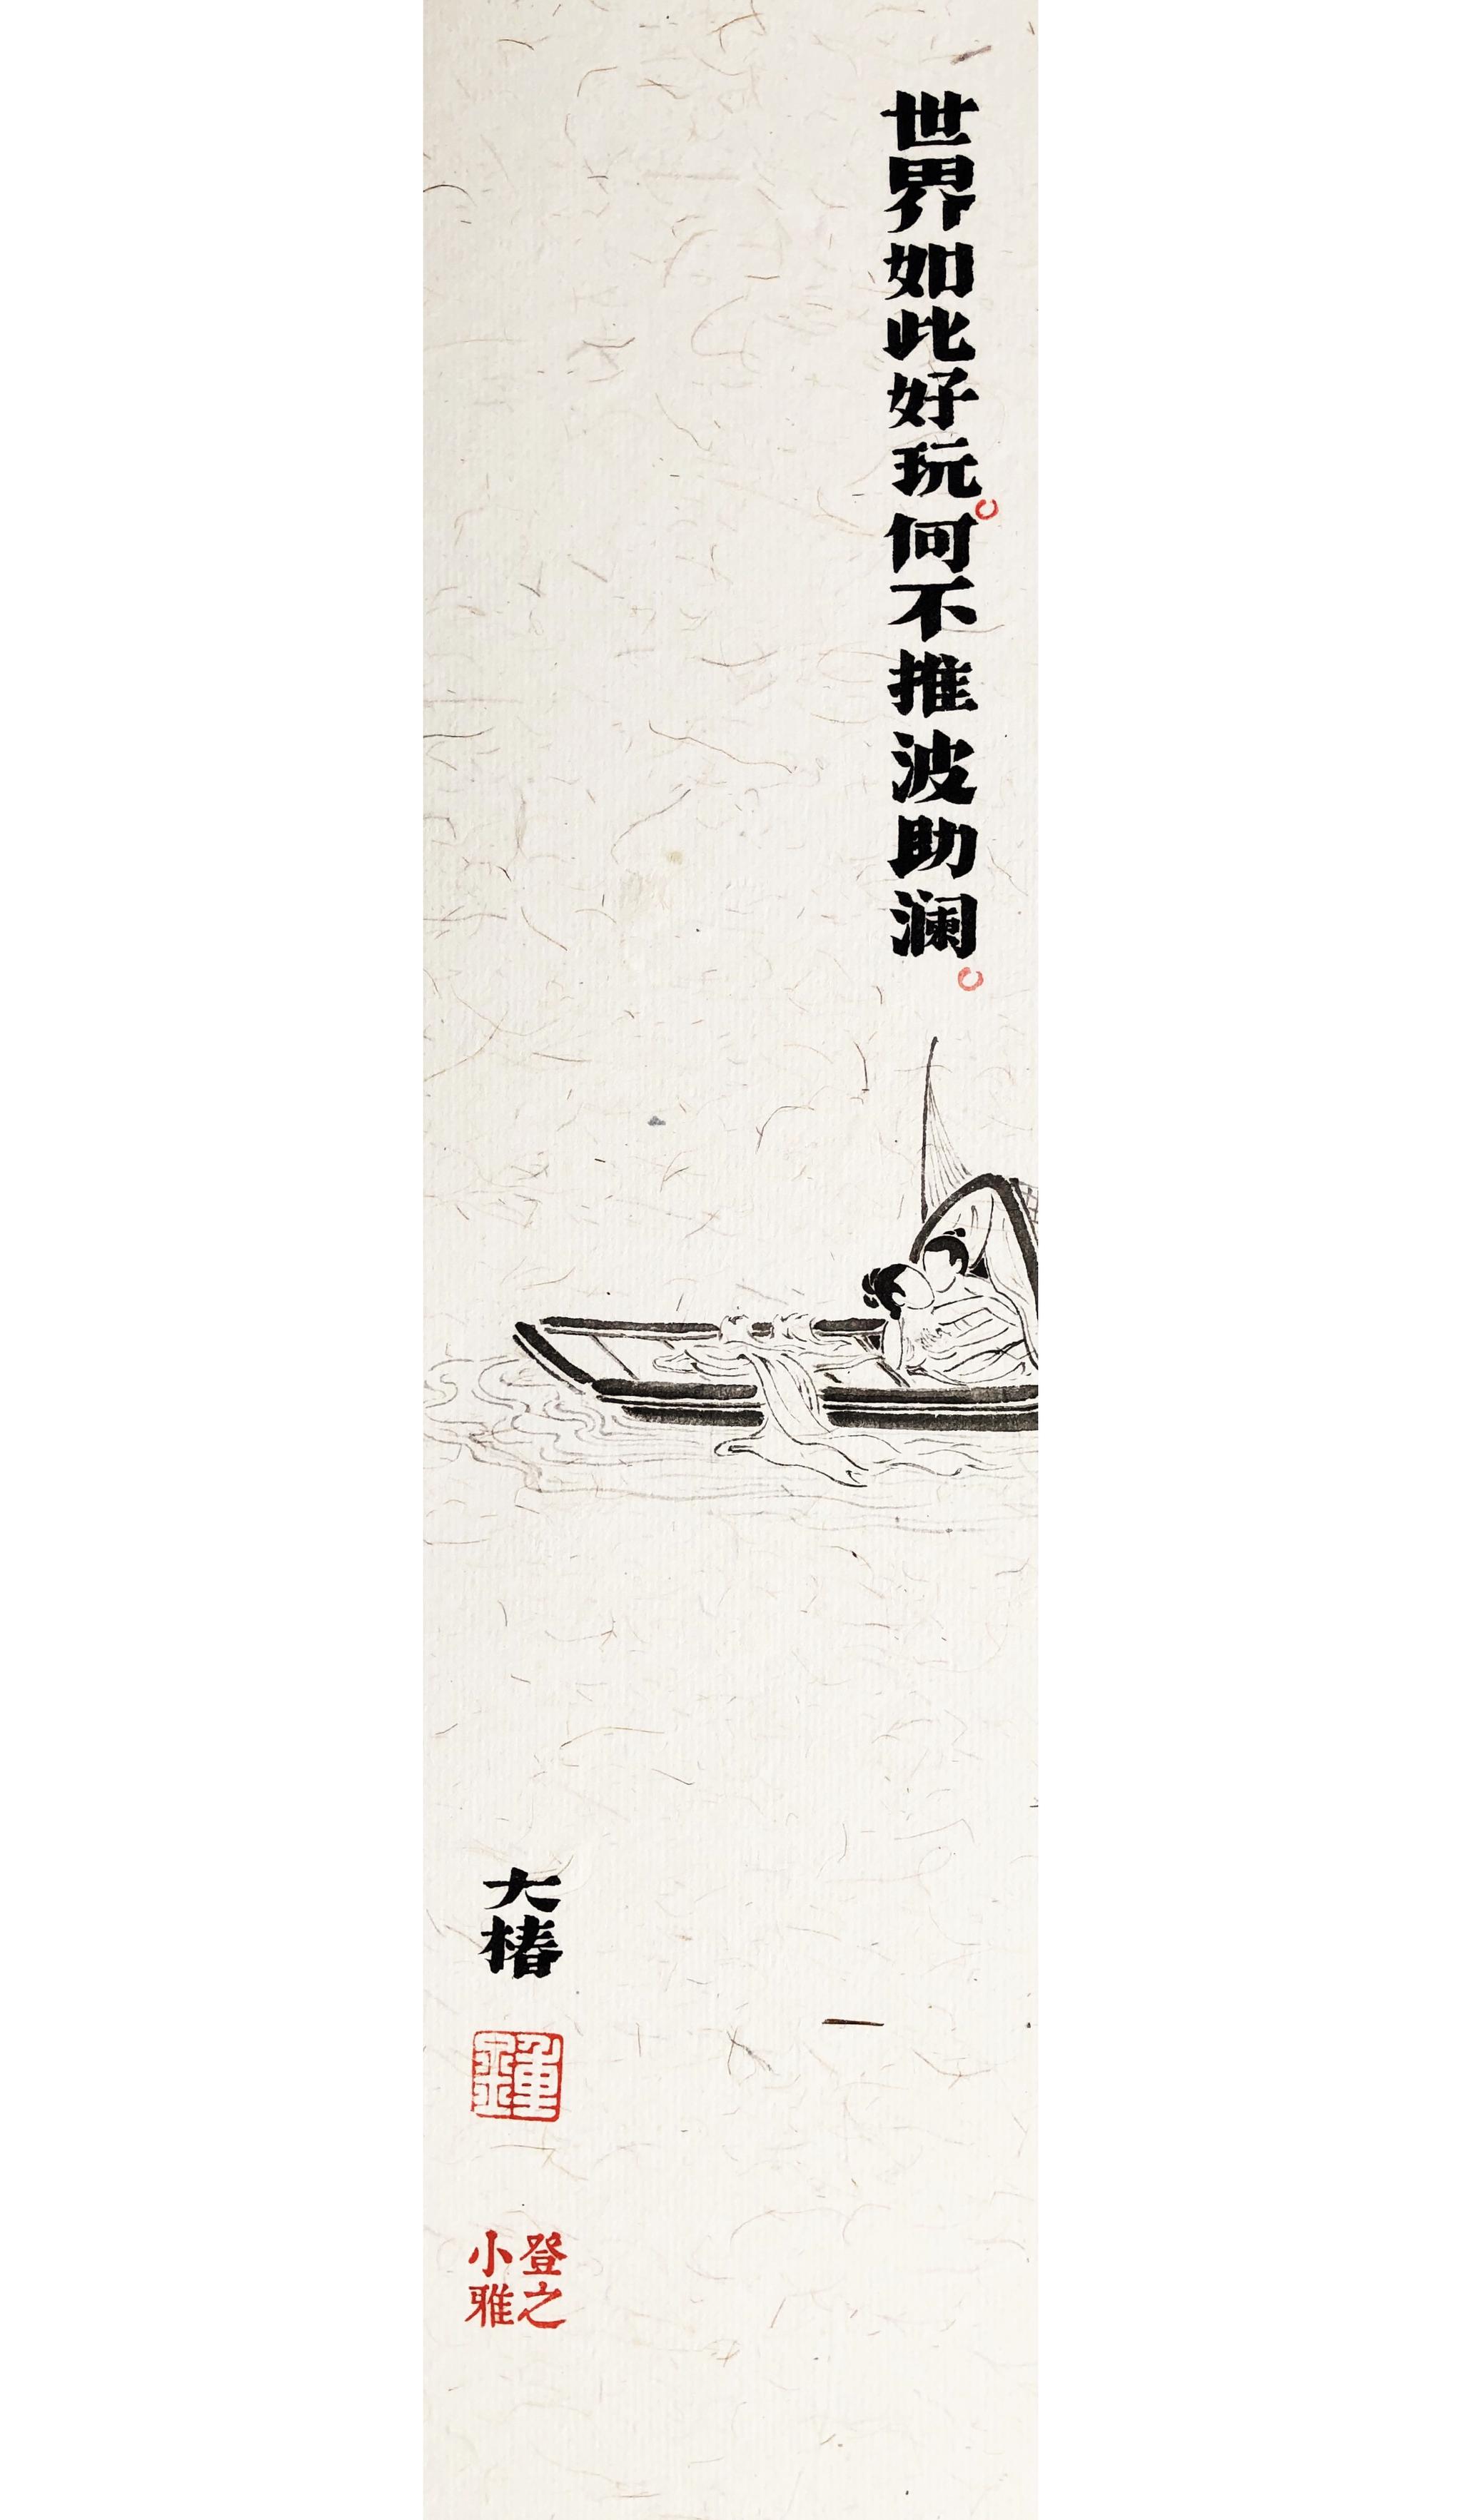 世界如此好玩。何不推波助澜。
大椿
鍾
登之
小雅